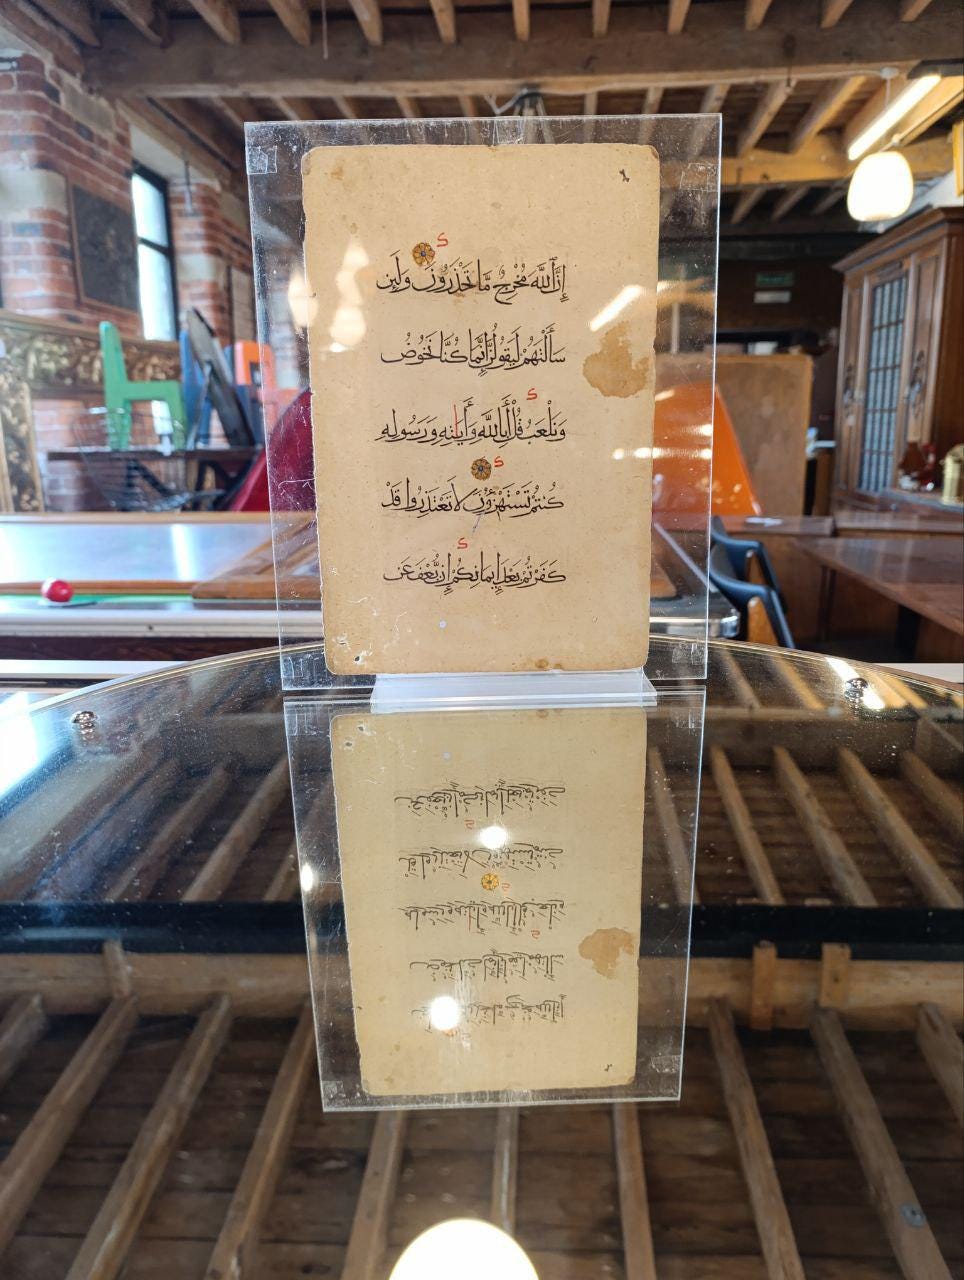 إِنَّ ٱللَّهَ مُخْرِجٌ مَّا تَحْذَرُونَ وَلَئِن
سَأَلْتَهُمْ لَيَقُولُنَّ إِنَّمَا كُنَّا نَخُوضُ
وَنَلْعَبُ قُلْ أَبِاللَّهِ وَأَيَاتِهِ وَرَسُولِهِ
كُنتُمْ تَسْتَهْزِؤُنَ لَا تَعْتَذِرُوا قَدْ
كَفَرْتُمْ بَعْدَ إِيمَانِكُمْ إِن نَّعْفُ عَن